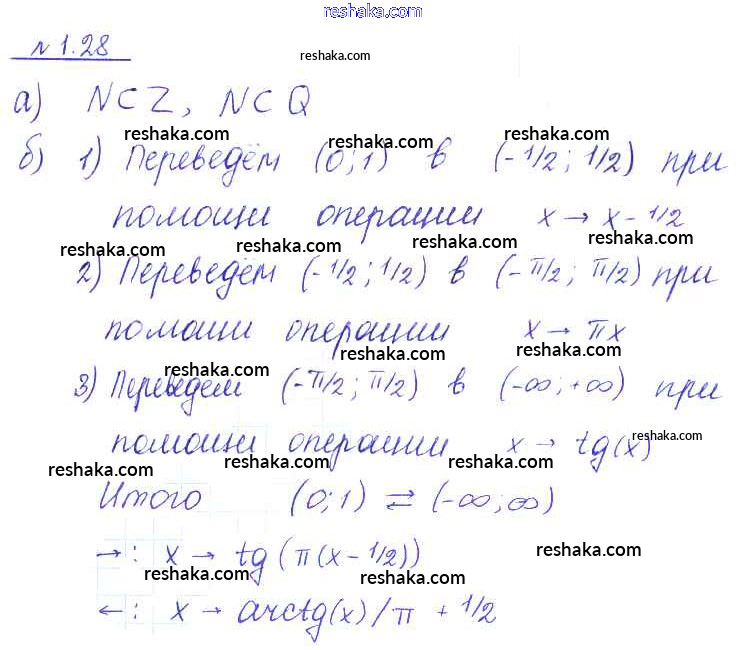 reshaka.com
№ 1.28
reshaka.com
а) N⊂Z, N⊂Q
reshaka.com reshaka.com reshaka.com
б) 1) Переведём (0;1) в (-1/2; 1/2) при
помощи операции x → x-1/2
reshaka.com reshaka.com reshaka.com reshaka.com
2) Переведём (-1/2; 1/2) в (-π/2; π/2) при
помощи операции x → πx
reshaka.com reshaka.com reshaka.com
3) Переведем (-π/2; π/2) в (-∞; +∞) при
помощи операции x → tg(x)
reshaka.com
reshaka.com reshaka.com reshaka.com
Итого (0;1) ⇄ (-∞; ∞)
reshaka.com reshaka.com
→: x → tg(π(x-1/2))
reshaka.com reshaka.com reshaka.com
←: x → arctg(x)/π + 1/2
reshaka.com